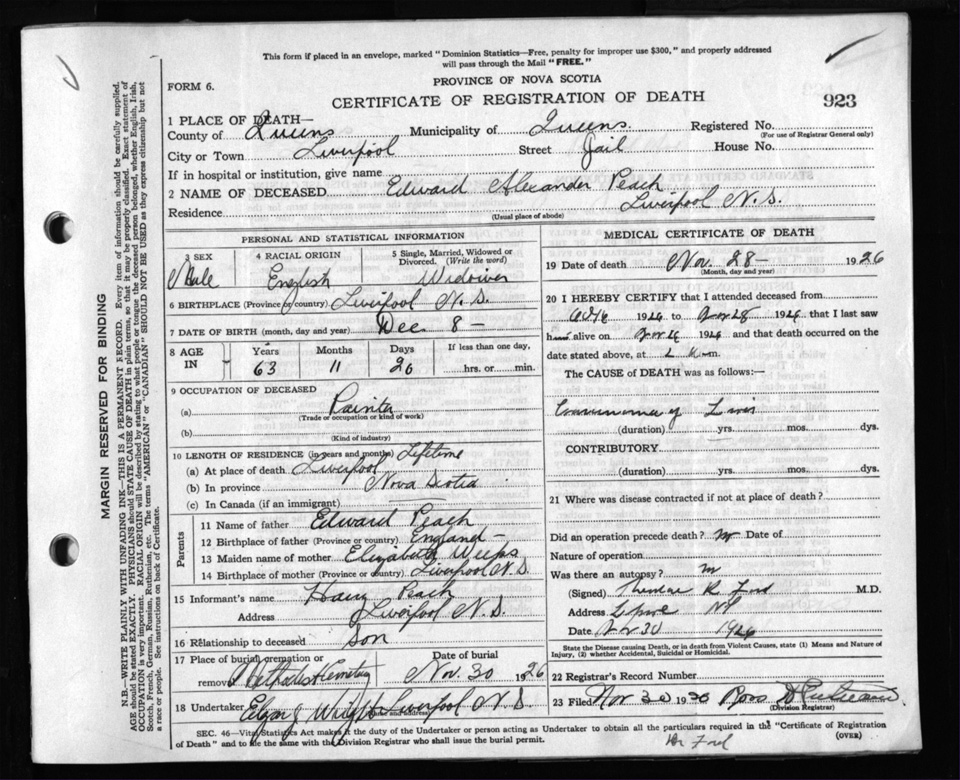 This form if placed in an envelope, marked "Dominion Statistics—Free, penalty for improper use $300," and properly addressed
will pass through the Mail "FREE."
PROVINCE OF NOVA SCOTIA
FORM 6.
CERTIFICATE OF REGISTRATION OF DEATH
923
1 PLACE OF DEATH—
County of Queens Municipality of Queens Registered No.
(For use of Registrar General only)
City or Town Liverpool Street Jail House No.
If in hospital or institution, give name
2 NAME OF DECEASED Edward Alexander Peach
Residence Liverpool N.S.
(Usual place of abode)
PERSONAL AND STATISTICAL INFORMATION
3 SEX 4 RACIAL ORIGIN 5 Single, Married, Widowed or Divorced. (Write the word)
Male English Widower
6 BIRTHPLACE (Province or country) Liverpool N.S.
7 DATE OF BIRTH (month, day and year) Dec 8 —
8 AGE IN Years Months Days If less than one day,
63 11 20 hrs. or min.
9 OCCUPATION OF DECEASED
(a) Painter
(Trade or occupation or kind of work)
(b)
(Kind of industry)
10 LENGTH OF RESIDENCE (in years and months) Lifetime
(a) At place of death Liverpool
(b) In province Nova Scotia
(c) In Canada (if an immigrant)
Parents
11 Name of father Edward Peach
12 Birthplace of father (Province or country) England —
13 Maiden name of mother Elizabeth
14 Birthplace of mother (Province or country) Liverpool N.S.
15 Informant's name Harry Peach
Address Liverpool N.S.
16 Relationship to deceased Son
17 Place of burial, cremation or removal Methodist Cemetery Date of burial Nov. 30 1926
18 Undertaker Wright Liverpool N.S.
MEDICAL CERTIFICATE OF DEATH
19 Date of death Nov. 28 — 1926
(Month, day and year)
20 I HEREBY CERTIFY that I attended deceased from
1926 to Nov 28 1926 that I last saw
h alive on Nov 1926 and that death occurred on
date stated above, at m.
The CAUSE OF DEATH was as follows:—
(duration) yrs. mos. dys.
CONTRIBUTORY
(duration) yrs. mos. dys.
21 Where was disease contracted if not at place of death?
Did an operation precede death? no Date of
Nature of operation
Was there an autopsy? no
(Signed) Ford M.D.
Address
Date Nov 30 1926
State the Disease causing Death, or in death from Violent Causes, state (1) Means and Nature of
Injury, (2) whether Accidental, Suicidal or Homicidal.
22 Registrar's Record Number
23 Filed Nov 30 19
(Division Registrar)
SEC. 46—Vital Statistics Act makes it the duty of the Undertaker or person acting as Undertaker to obtain all the particulars required in the "Certificate of Registration
of Death" and to file the same with the Division Registrar who shall issue the burial permit.
(OVER)
Dr Ford
MARGIN RESERVED FOR BINDING
N.B.—WRITE PLAINLY WITH UNFADING INK—THIS IS A PERMANENT RECORD. Every item of information should be carefully supplied.
AGE should be stated EXACTLY. PHYSICIANS should STATE CAUSE OF DEATH in plain terms, so that it may be properly classified. Exact statement of
OCCUPATION is very important. RACIAL ORIGIN will be described by stating to what people or tongue the deceased person belonged, whether English, Irish,
Scotch, French, German, Russian, Ruthenian, etc. The terms "AMERICAN" or "CANADIAN" SHOULD NOT BE USED as they express citizenship but not
a race or people. See instructions on back of Certificate.